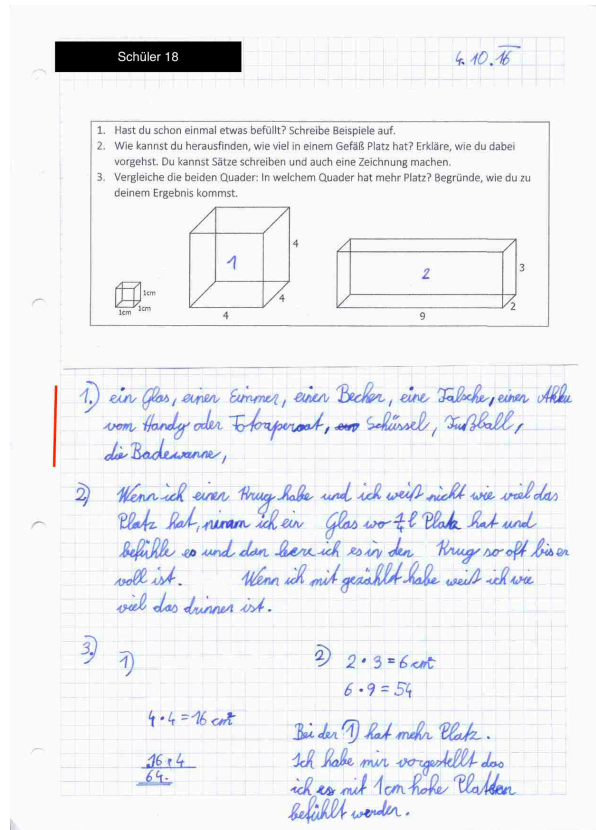 Schüler 18
4.10.16
1. Hast du schon einmal etwas befüllt? Schreibe Beispiele auf.
2. Wie kannst du herausfinden, wie viel in einem Gefäß Platz hat? Erkläre, wie du dabei
vorgehst. Du kannst Sätze schreiben und auch eine Zeichnung machen.
3. Vergleiche die beiden Quader: In welchem Quader hat mehr Platz? Begründe, wie du zu
deinem Ergebnis kommst.
1cm
1cm
1cm
1
4
4
4
2
3
2
9
1.) ein Glas, einen Eimmer, einen Becher, eine Falsche, einen Akku
vom Handy oder Fotoaperaat, Schüssel, Fußball,
die Badewanne,
2) Wenn ich einen Krug habe und ich weiß nicht wie viel das
Platz hat, nimm ich ein Glas wo 1/4 l Platz hat und
befühle es und dan leere ich es in den Krug so oft bis er
voll ist. Wenn ich mit gezählt habe weiß ich wie
viel das drinnen ist.
3.)
1)
4 · 4 = 16 cm²
16 · 4
64.
2) 2 · 3 = 6 cm²
6 · 9 = 54
Bei der 1) hat mehr Platz.
Ich habe mir vorgestellt das
ich es mit 1cm hohe Platten
befühlt werden.